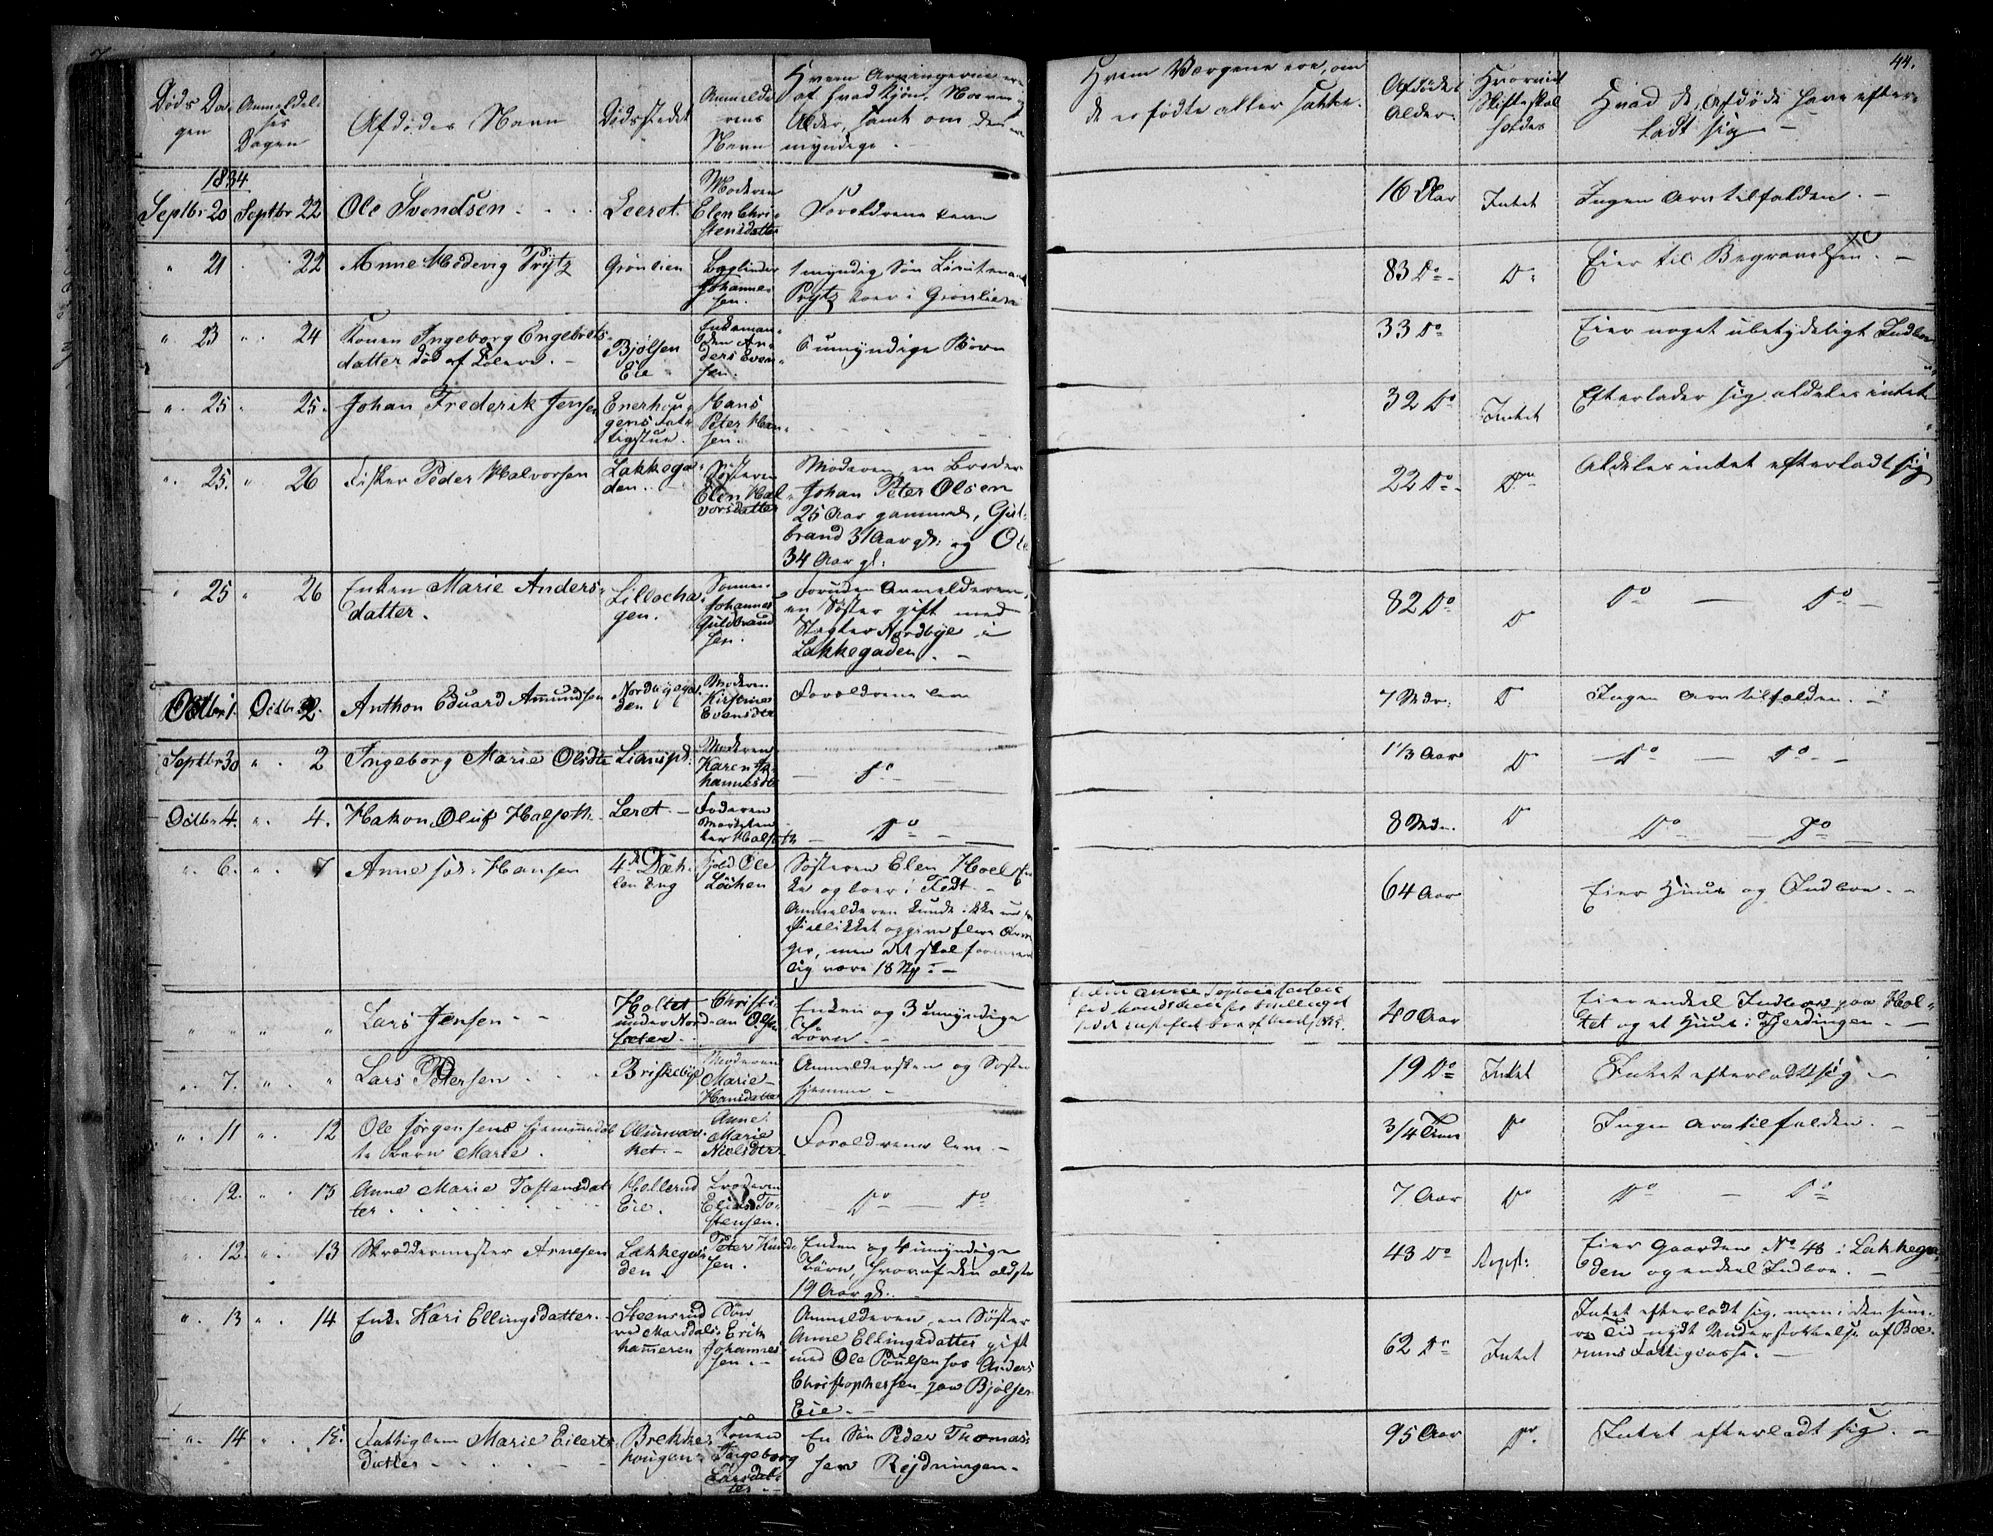 44.
Døds Da-
gen
Anmeldel-
ses
Dagen
Afdødes Navn
Dødsstedet
Anmelde-
rens
Navn
Hvem Arvingerne ere
af hvad Kjøn, Navn og
Alder, samt om de ere
myndige.
Hvem Værgene ere, om
de er fødte eller satte.
Afdødes
Alder
Hvorvidt
Skifte skal
holdes
Hvad de Afdøde have efter-
ladt sig
1834
Septbr 20 Septbr 22 Ole Svendsen Leeret Moderen Elen Chri-
stensdatter Forældrene leve 16 Aar Intet Ingen Arv tilfalden.
" 21 22 Anne Hedevig Prytz Grønlien Johannes-
sen. 1 myndig Søn Lieutenant
Prytz boer i Grønlien 83 Do Do Eier til Begravelsen.
" 23 " 24 Konen Ingeborg Engebrets-
datter død af Bjølsen
Eie Enkeman-
den An-
ders Even-
sen. 6 umyndige Børn 33 Do Eier noget ubetydeligt Indboe
" 25 " 25. Johan Frederik Jensen Enerhou-
gens Fat-
tigstue. Hans
Peter Han-
sen. 32 Do Intet Efterlader sig aldeles intet
" 25. " 26 Peder Halvorsen Lakkega-
den. Søsteren
Elen Hal-
vorsdatter Moderen, en Broder
Johan Peter Olsen
25 Aar gammel, Gul-
brand 31 Aar gl: og Ole
34 Aar gl: 22 Do Do Aldeles intet efterladt sig
" 25 " 26 Enken Marie Anders-
datter. Lillocha-
gen. Sønnen
Johannes
Guldbrand-
sen. Foruden Anmelderen,
en Søster gift med
Slagter Nordbye i
Lakkegaden. 82 Do Do Do Do
Octbr 1. Octbr 2. Anthon Eduard Amundsen Nordbyega-
den Moderen
Evensdtr Forældrene leve 7 Mdr: Do Ingen Arv tilfalden.
Septbr 30 " 2 Ingeborg Marie Olsdtr Moderen
Karen Jo-
hannesdtr Do 1 1/3 Aar Do Do Do
Octbr 4. " 4. Hakon Oluf Halseth Leret Faderen Do 8 Mdr. Do Do Do
" 6. " 7 Anne fød: Hansen 4de Dæh-
len Eng Ole
Løchen Søsteren Elen Hoel
og boer i Fedt.
Anmelderen kunde ikke
Øieblikket opgive flere Arvin-
ger, men det skal formeent-
lig være 18 St: 64 Aar Eier Huus og Indboe.
" " " " Lars Jensen Holtet
under Nord-
Christi-
an Olsen Enken og 3 umyndige
Børn 40 Aar Eier endeel Indboe paa Hol-
tet og et Huus i Fjerdingen.
" 7. " " Lars Petersen Briskebye Moderen
Marie
Hansdatter Anmeldersken og Søster
hjemme 19 Do Intet Intet efterladt sig
" 11 " 12 Ole Jørgensens hjemmedøb-
te Barn Marie. Anne
Marie
Nielsdtr Forældrene leve 3/4 Time Do Ingen Arv tilfalden.
" 12. " 13 Anne Marie Tostensdat-
ter Hellerud
Eie. Broderen
Elias To-
stensen. Do Do 7 Aar Do Do Do
" 12. " 13 Skræddermester Arnesen Lakkega-
den Peter Knud-
sen. Enken og 4 umyndige
Børn, hvoraf den ældste
19 Aar gl: 43 Do Eier Gaarden No 48 i Lakkega-
den og endeel Indboe.
" 13 " 14 Enke Kari Ellingsdatter Steensrud
ved Marddals-
hameren Søn
Erik
Johannes-
sen Anmelderen, en Søster
Anne Ellingsdatter gift
med Ole Poulsen hos Anders
Christophersen paa Bjølsen
Eie. 62 Do Intet Intet efterladt sig, men i den sene-
re Tid nydt Understøttelse af Bæ-
rums Fattigcasse.
" 14 " 15. Fattiglem Marie Eilerts-
datter Brekke-
hougen Konen
Ingeborg
Larsdat-
ter En Søn Peder Thomas-
sen Rejdningen 95 Aar Do Intet efterladt sig.